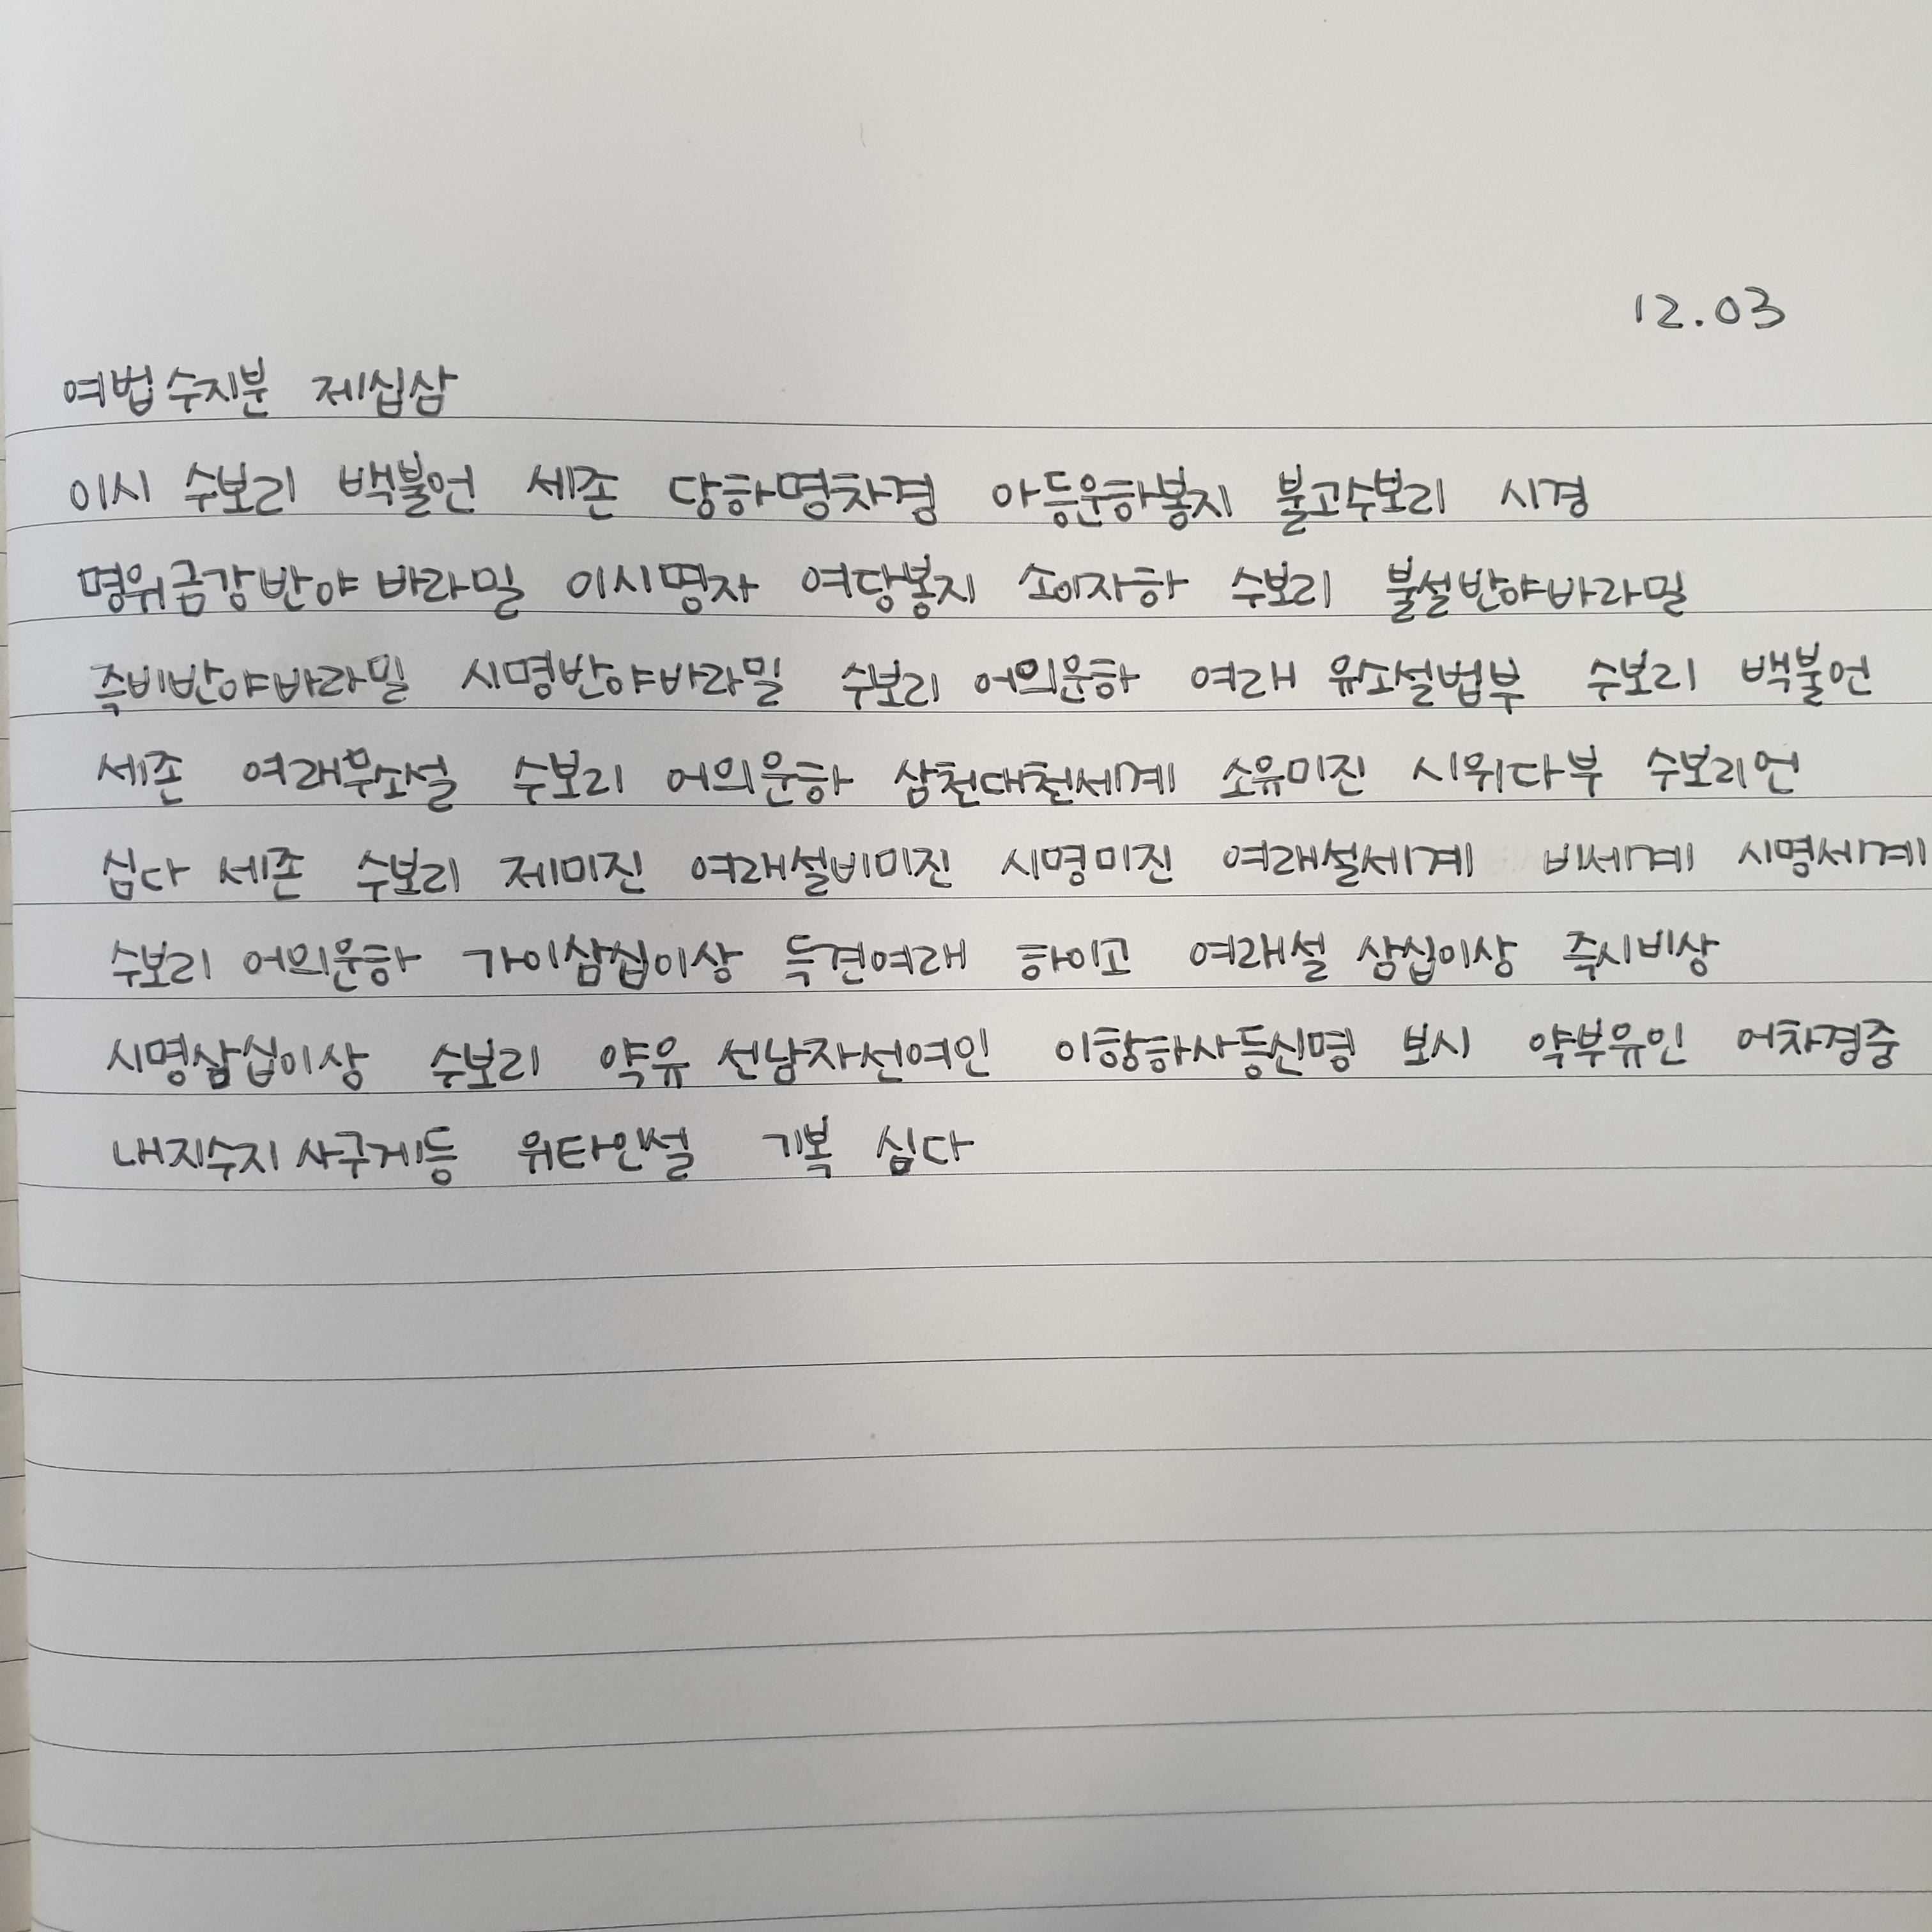 12.03
여법수지분 제십삼
이시 수보리 백불언 세존 당하명차경 아등운하봉지 불고수보리 시경
명위금강반야바라밀 이시명자 여당봉지 소이자하 수보리 불설반야바라밀
즉비반야바라밀 시명반야바라밀 수보리 어의운하 여래 유소설법부 수보리 백불언
세존 여래무소설 수보리 어의운하 삼천대천세계 소유미진 시위다부 수보리언
심다 세존 수보리 제미진 여래설비미진 시명미진 여래설세계 비세계 시명세계
수보리 어의운하 가이삼십이상 득견여래 하이고 여래설 삼십이상 즉시비상
시명삼십이상 수보리 약유 선남자선여인 이항하사등신명 보시 약부유인 어차경중
내지수지 사구게등 위타인설 기복 심다